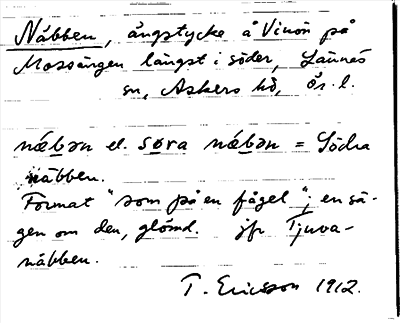 Näbben, ängstycke å Vinön på
Mossängen längst i söder, Lännäs
sn, Askers hd, Ör. l.
næbən el. søra næbən = Södra
näbben.
Format "som på en fågel"; en sä-
gen om den, glömd. jfr Tjuva-
näbben.
T. Ericsson 1912.